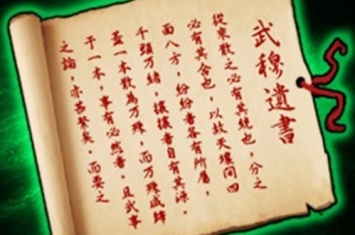 武穆遺書
從來散之必有其統也，分之
必有其合也，以故天壤間四
面八方，紛紛者各有所屬，
千頭万緒，攘攘者自有其源。
蓋一本散為万殊，而万殊咸歸
于一本，事有必然者。且武事
之論，亦甚繁矣，而要之